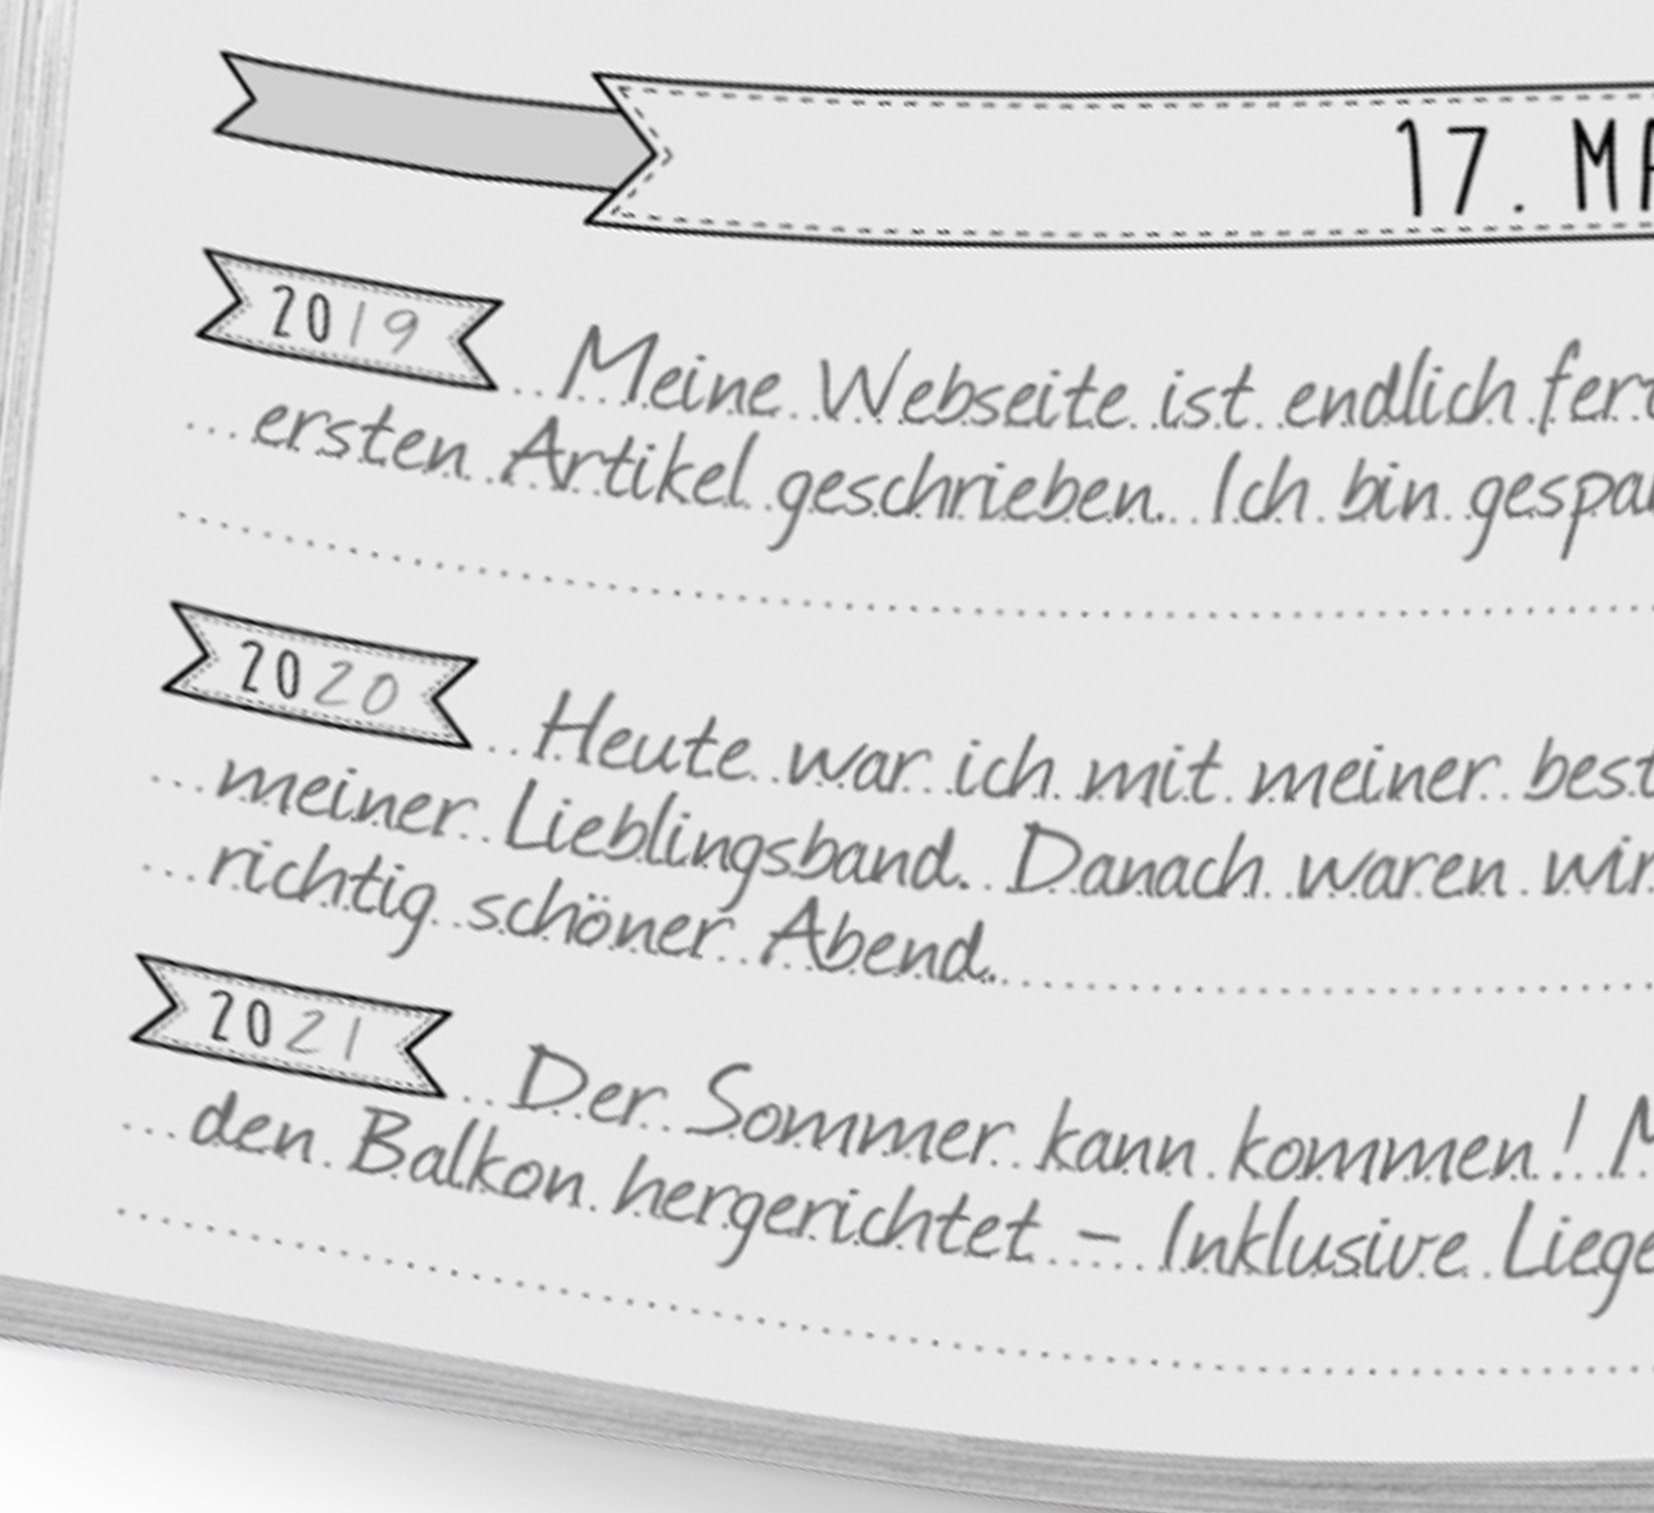 17. MA
2019 Meine Webseite ist endlich fert
ersten Artikel geschrieben. Ich bin gespan
2020 Heute war ich mit meiner best
meiner Lieblingsband. Danach waren wir
richtig schöner Abend.
2021 Der Sommer kann kommen! M
den Balkon hergerichtet - Inklusive Liege